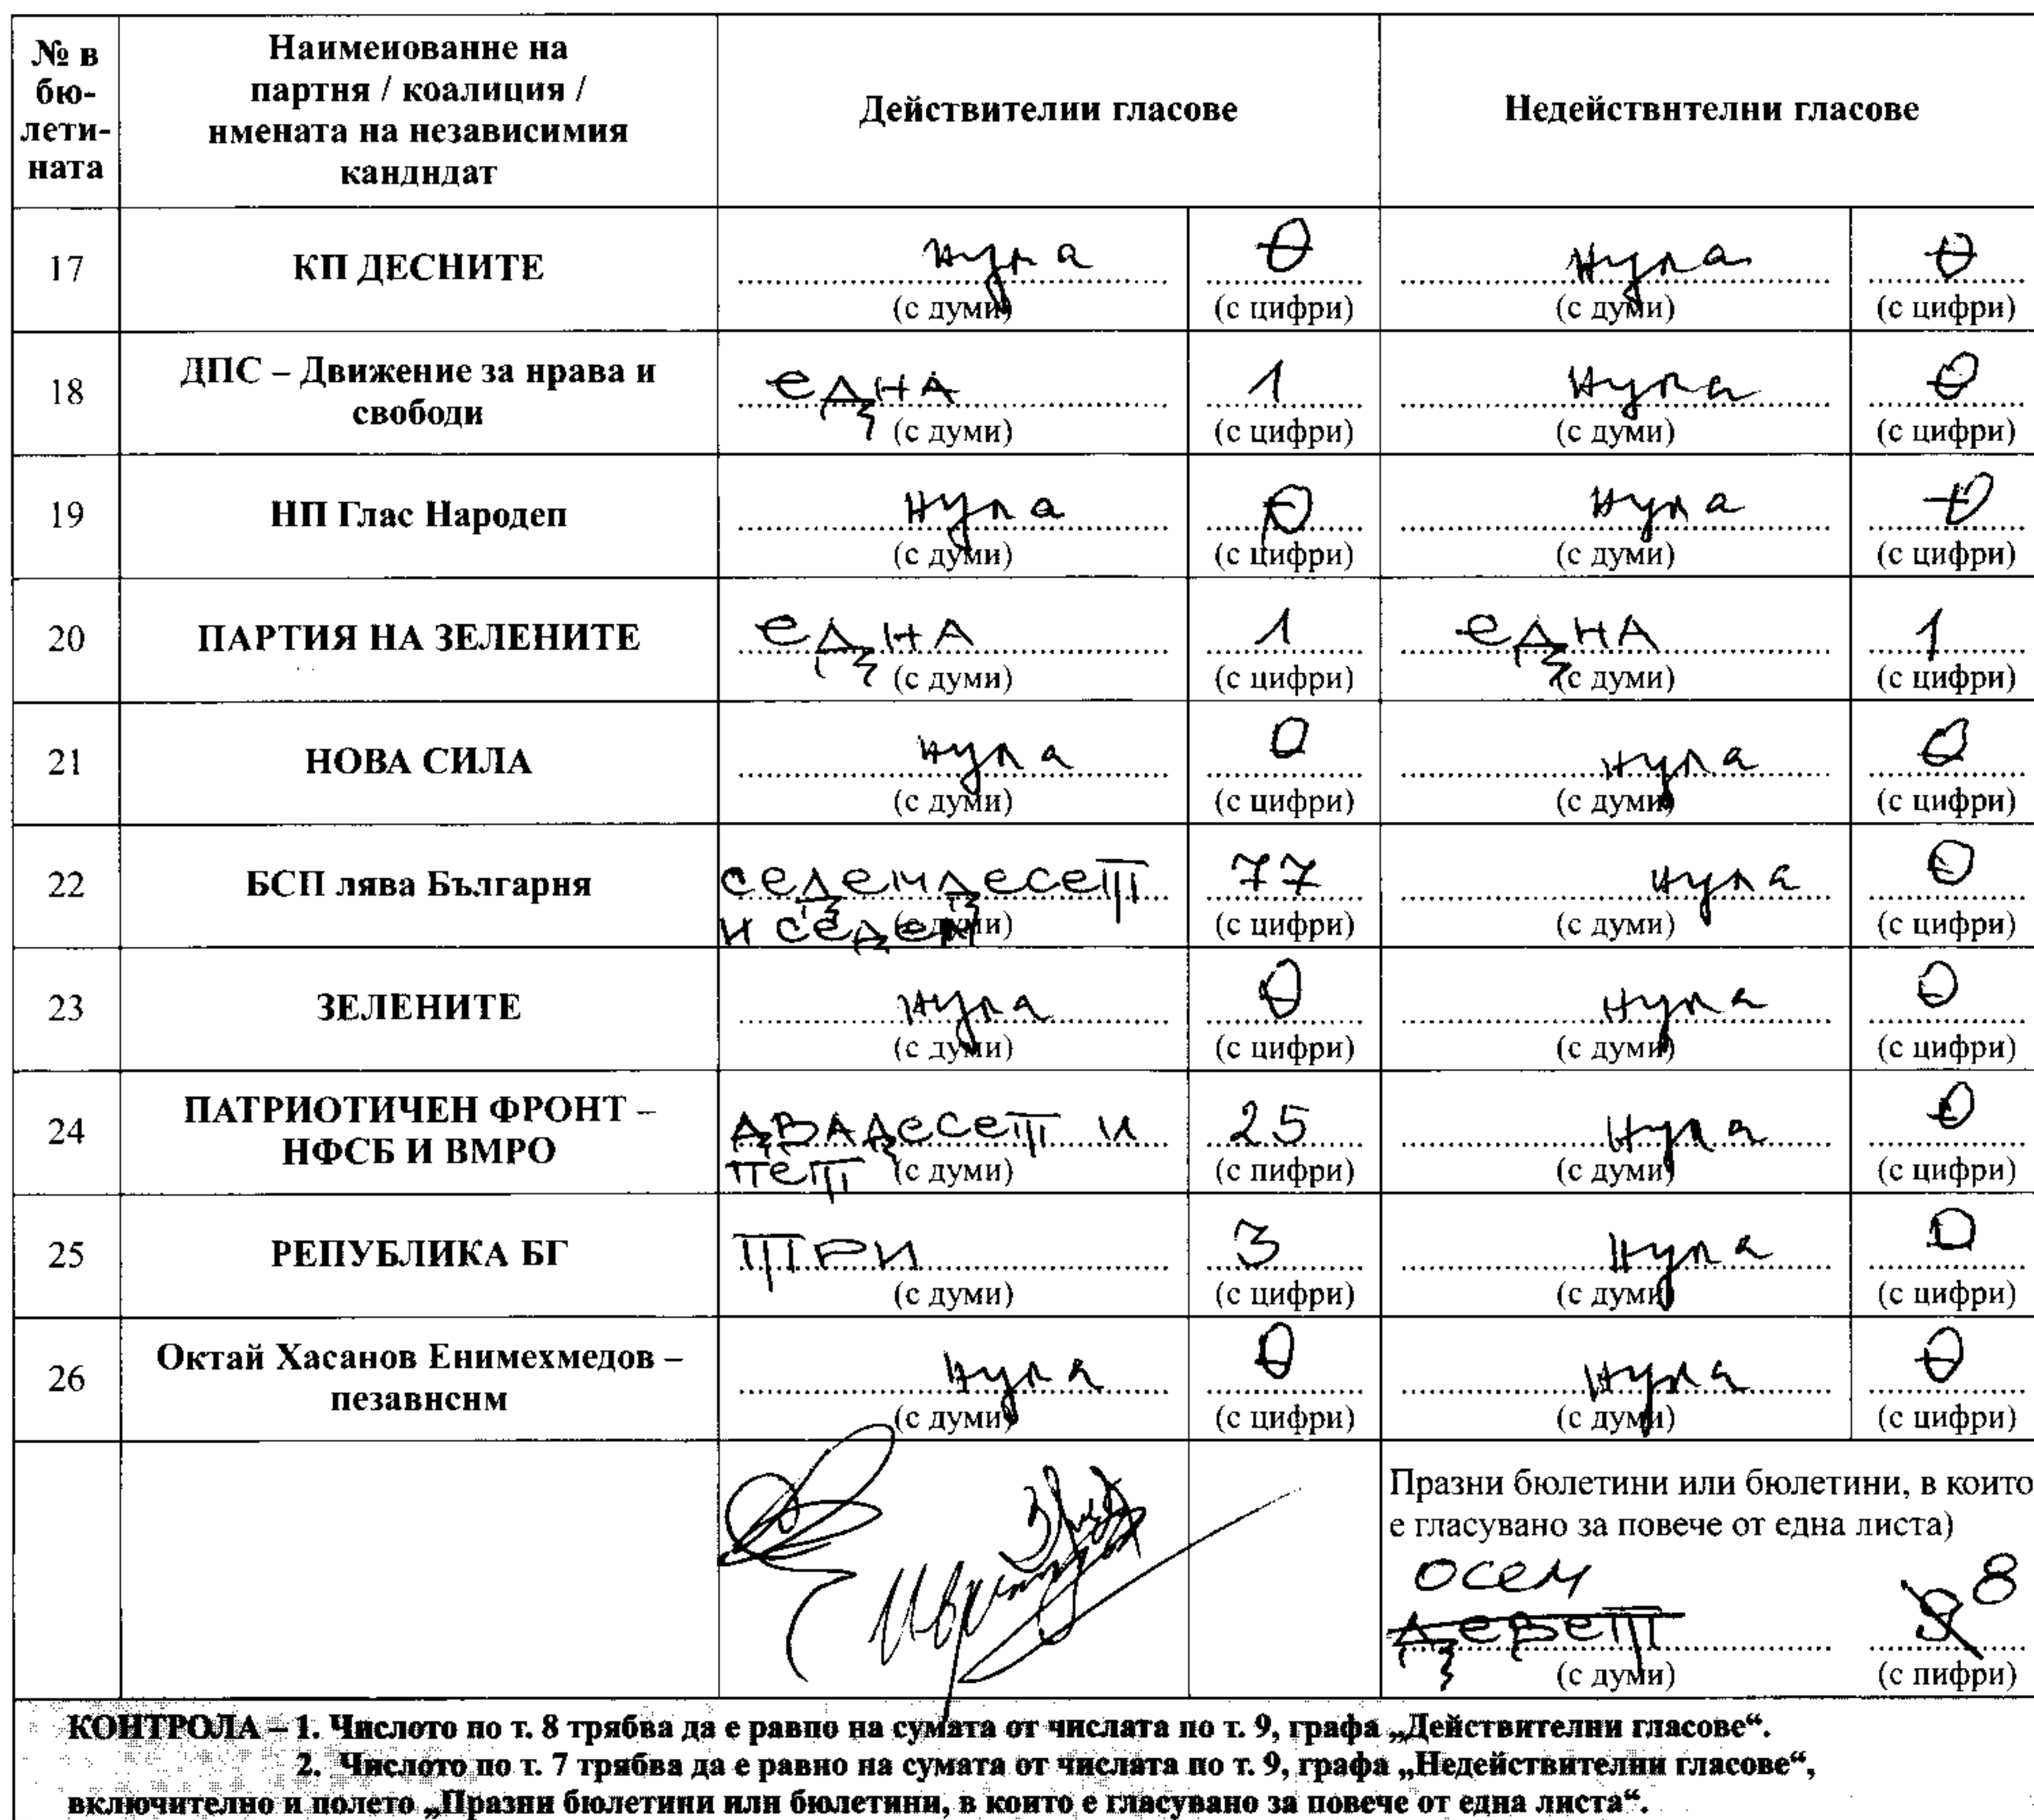 № в бю-лети-ната
Наименование на партия / коалиция / имената на независимия кандидат
Действителни гласове
Недействителни гласове
17 КП ДЕСНИТЕ нула 0 нула 0
(с думи) (с цифри) (с думи) (с цифри)
18 ДПС – Движение за нрава и свободи една 1 нула 0
(с думи) (с цифри) (с думи) (с цифри)
19 НП Глас Народеп нула 0 нула 0
(с думи) (с цифри) (с думи) (с цифри)
20 ПАРТИЯ НА ЗЕЛЕНИТЕ една 1 една 1
(с думи) (с цифри) (с думи) (с цифри)
21 НОВА СИЛА нула 0 нула 0
(с думи) (с цифри) (с думи) (с цифри)
22 БСП лява България седемдесет и седем 77 нула 0
(с думи) (с цифри) (с думи) (с цифри)
23 ЗЕЛЕНИТЕ нула 0 нула 0
(с думи) (с цифри) (с думи) (с цифри)
24 ПАТРИОТИЧЕН ФРОНТ – НФСБ И ВМРО двадесет и пет 25 нула 0
(с думи) (с пифри) (с думи) (с цифри)
25 РЕПУБЛИКА БГ три 3 нула 0
(с думи) (с цифри) (с думи) (с цифри)
26 Октай Хасанов Енимехмедов – пезависим нула 0 нула 0
(с думи) (с цифри) (с думи) (с цифри)
Празни бюлетини или бюлетини, в които
е гласувано за повече от една листа)
осем 8
девет 9
(с думи) (с пифри)
КОНТРОЛА – 1. Числото по т. 8 трябва да е равпо на сумата от числата по т. 9, графа „Действителни гласове“.
2. Числото по т. 7 трябва да е равно на сумата от числата по т. 9, графа „Недействителни гласове“,
включително и полето „Празни бюлетини или бюлетини, в които е гласувано за повече от една листа“.